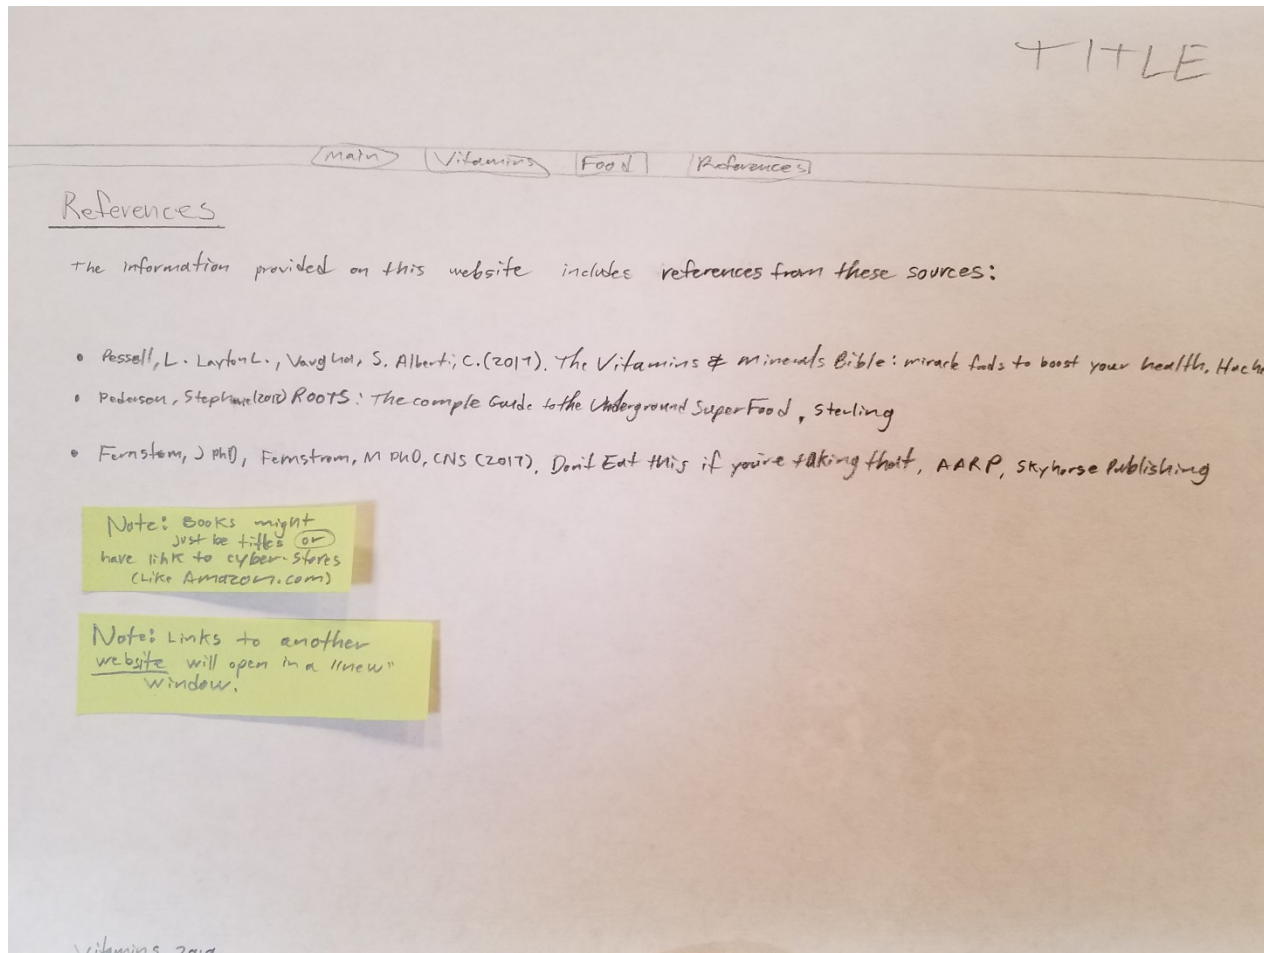 TITLE
Main Vitamins Food References
References
The information provided on this website includes references from these sources:
• Pessell, L. Layton L., Vaugha, S. Alberti, C. (2017). The Vitamins & minerals Bible: mirack foods to boost your health.
• Pederson, Stephanie (2012) ROOTS: The comple Guide to the Underground SuperFood, Sterling
• Fernstom, J PhD, Fernstrom, M PhD, CNS (2017), Don't Eat this if you're taking that, AARP, Skyhorse Publishing
Note: Books might
just be titles or
have link to cyber-stores
(Like Amazon.com)
Note: Links to another
website will open in a "new"
window.
Vitamins